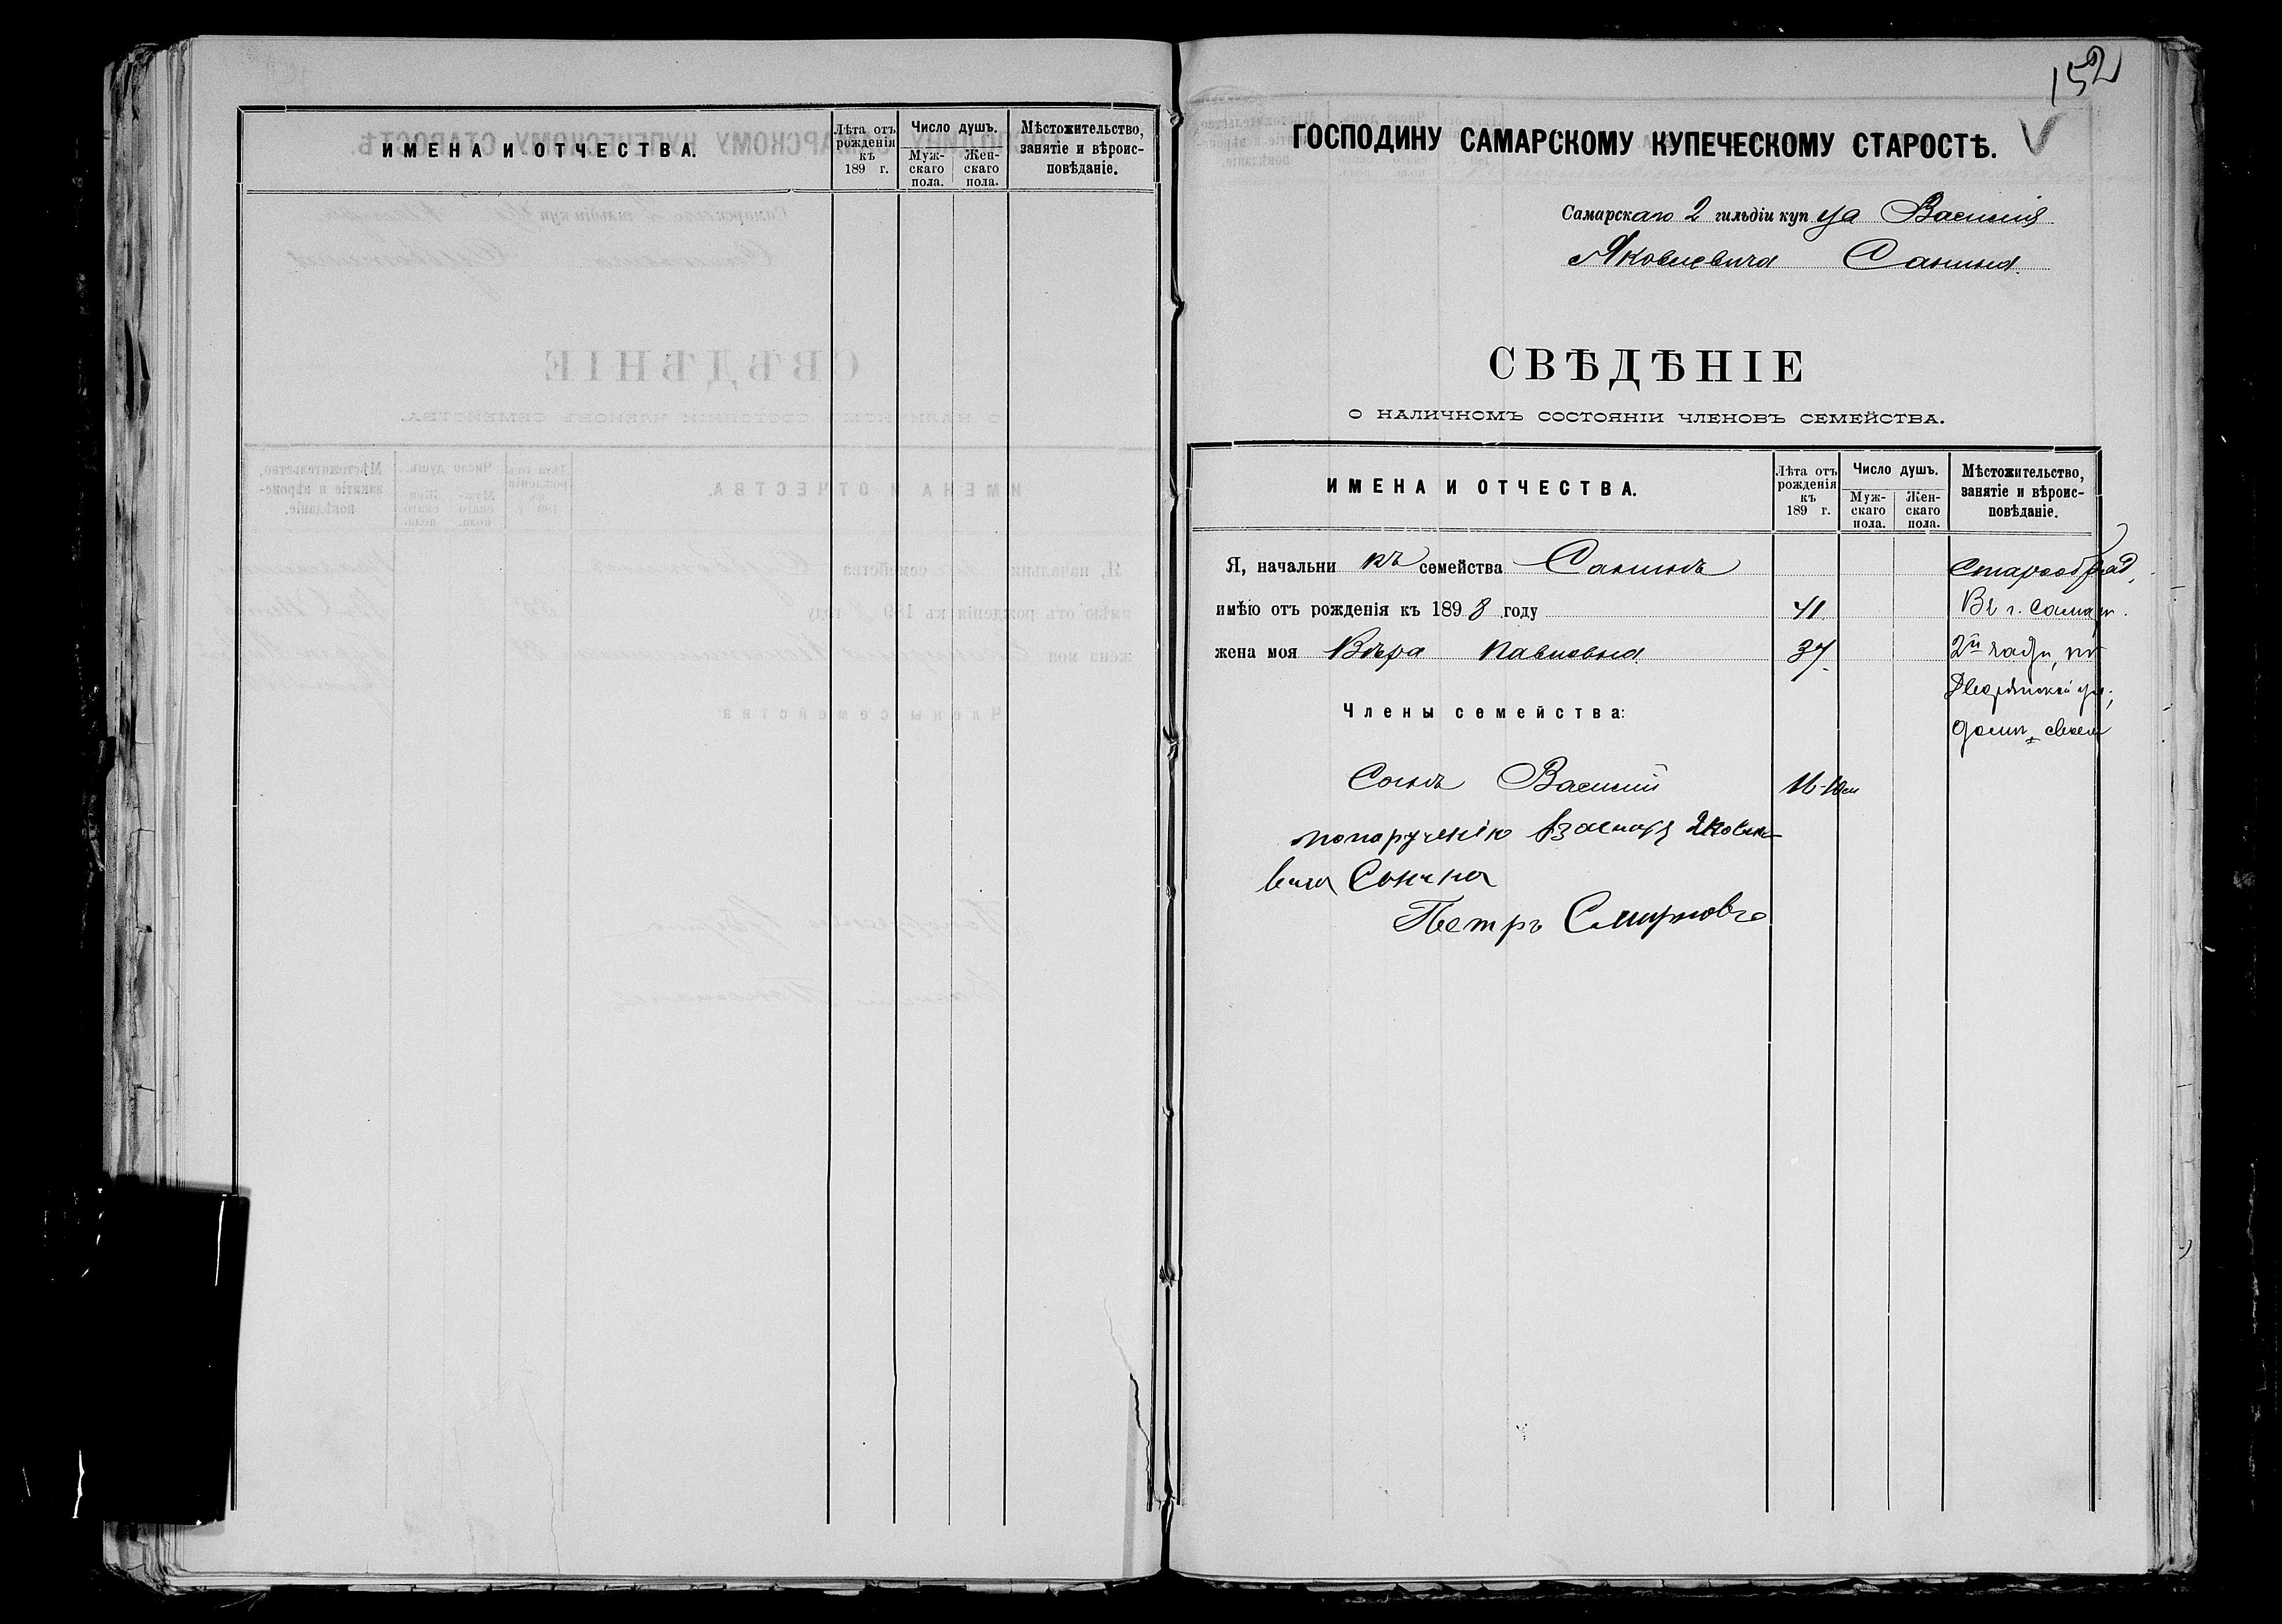 ИМЕНА И ОТЧЕСТВА.
Лѣта отъ рожденія къ 189 г.
Число душъ.
Мужскаго пола.
Женскаго пола.
Мѣстожительство, занятіе и вѣроисповѣданіе.
152
ГОСПОДИНУ САМАРСКОМУ КУПЕЧЕСКОМУ СТАРОСТѢ.
Самарскаго 2 гильдіи купца Василія
Яковлевича Санина.
СВѢДѢНІЕ
О НАЛИЧНОМЪ СОСТОЯНІИ ЧЛЕНОВЪ СЕМЕЙСТВА.
ИМЕНА И ОТЧЕСТВА.
Лѣта отъ рожденія къ 189 г.
Число душъ.
Мужскаго пола.
Женскаго пола.
Мѣстожительство, занятіе и вѣроисповѣданіе.
Я, начальникъ семейства Санинъ
Старообряд.
имѣю отъ рожденія къ 1898 году 41
Въ г. Самарѣ.
жена моя Вѣра Павловна 37
2й части, по
Дворянской ул.,
Члены семейства:
домъ свой
Сынъ Василій
по порученію Василія Яковле-
вича Санина
Петръ Смирновъ